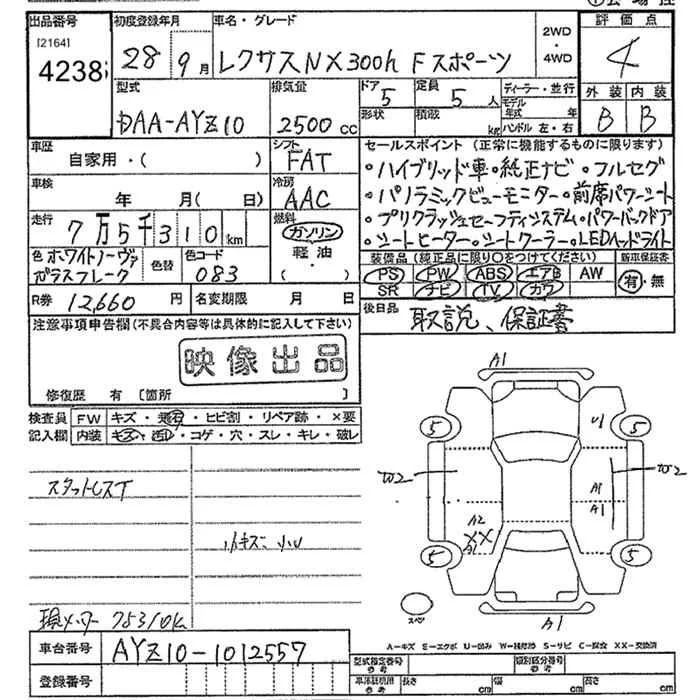 出品番号
[2164]
4238
初度登録年月
28 9月
車名・グレード
レクサスNX300h Fスポーツ
2WD
・
4WD
評価点
4
外装 内装
B B
型式
DAA-AYZ10
排気量
2500cc
ドア
5
定員
5人
形状
積載
kg
ディーラー・並行
モデル年式 年
ハンドル 左・右
車歴
自家用・( )
シフト
FAT
車検
年 月( 日)
冷房
AAC
走行
7万5千310km
燃料
ガソリン
軽油
( ・ )
色 ホワイトノーヴァ
ガラスフレーク
色替
色コード
083
R券 12,660円
名変期限 月 日
セールスポイント (正常に機能するものに限ります)
・ハイブリッド車・純正ナビ・フルセグ
・パノラミックビューモニター・前席パワーシート
・プリクラッシュセーフティシステム・パワーバックドア
・シートヒーター・シートクーラー・LEDヘッドライト
装備品 (純正品に限り○をつけてください)
PS PW ABS エアB AW
SR ナビ TV カワ
新車保証書
有・無
後日品 取説、保証書
注意事項申告欄 (不具合内容等は具体的に記入して下さい)
映像出品
修復歴 有 [箇所 ]
検査員
記入欄
FW キズ・飛石・ヒビ割・リペア跡・×要
内装 キズ・汚レ・コゲ・穴・スレ・キレ・破レ
スタットレスT
小キズ 小U
現メーター 75310K
車台番号 AYZ10-1012557
登録番号
A1
U1
5
5
W2
W2
A1
A1
A2
XX
5
5
スペア
A1
A-キズ E-エクボ U-凹み W-補修跡 S-サビ C-腐食 XX-交換済
型式指定番号
参考
類別区分番号
参考
車体証明用
参考
長さ cm
幅 cm
高さ cm